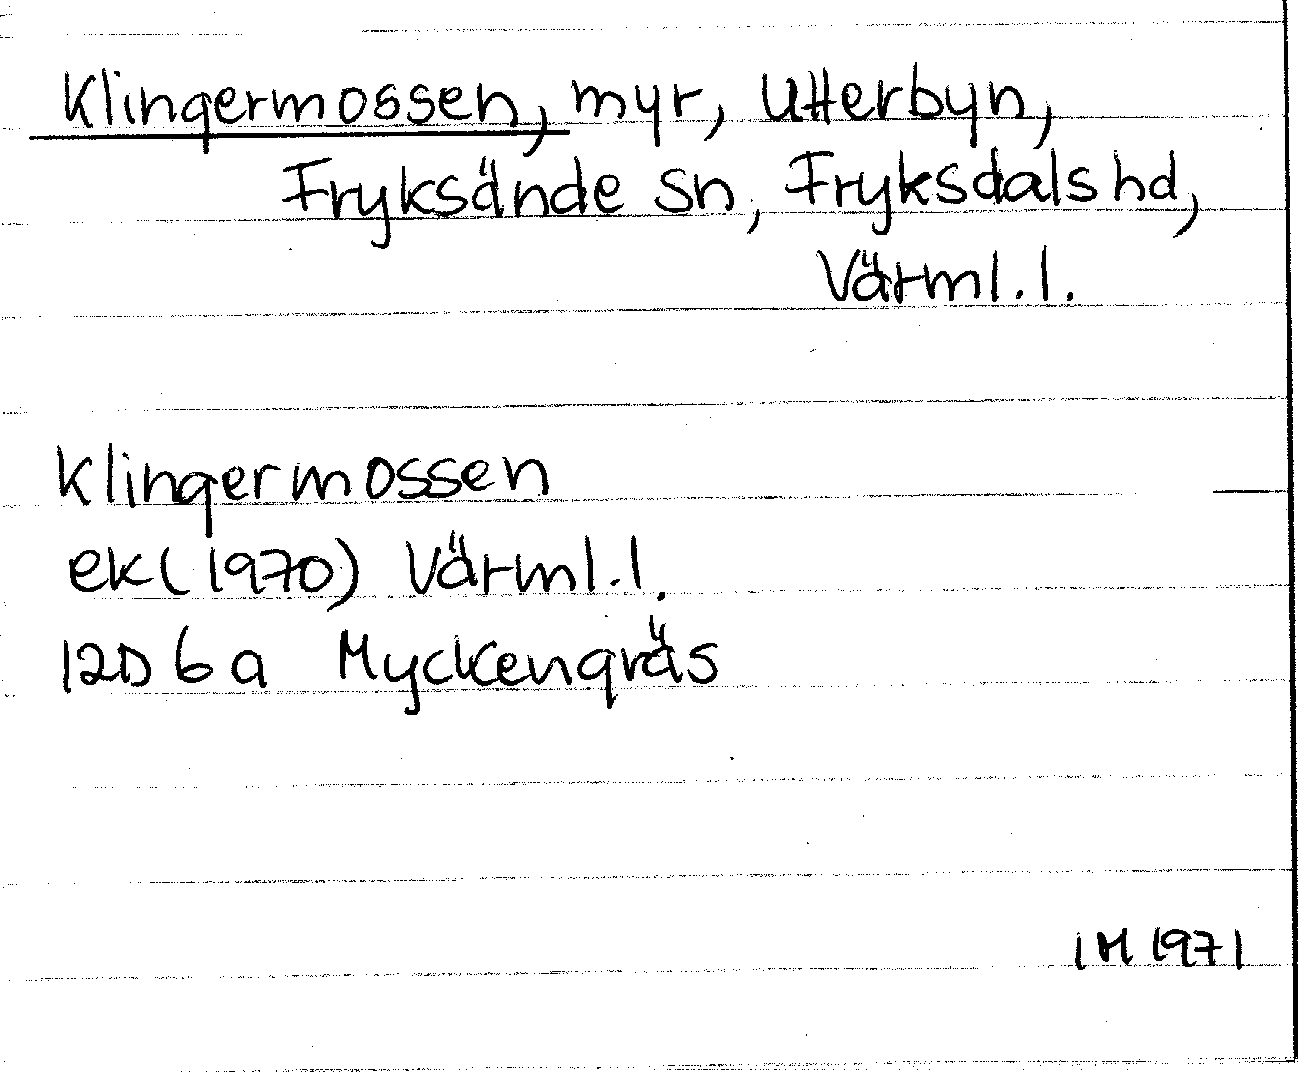 Klingermossen, myr, Utterbyn,
Fryksände sn, Fryksdals hd,
Värml.l.
Klingermossen
ek (1970) Värml.l.
12D 6a Myckengräs
IM 1971